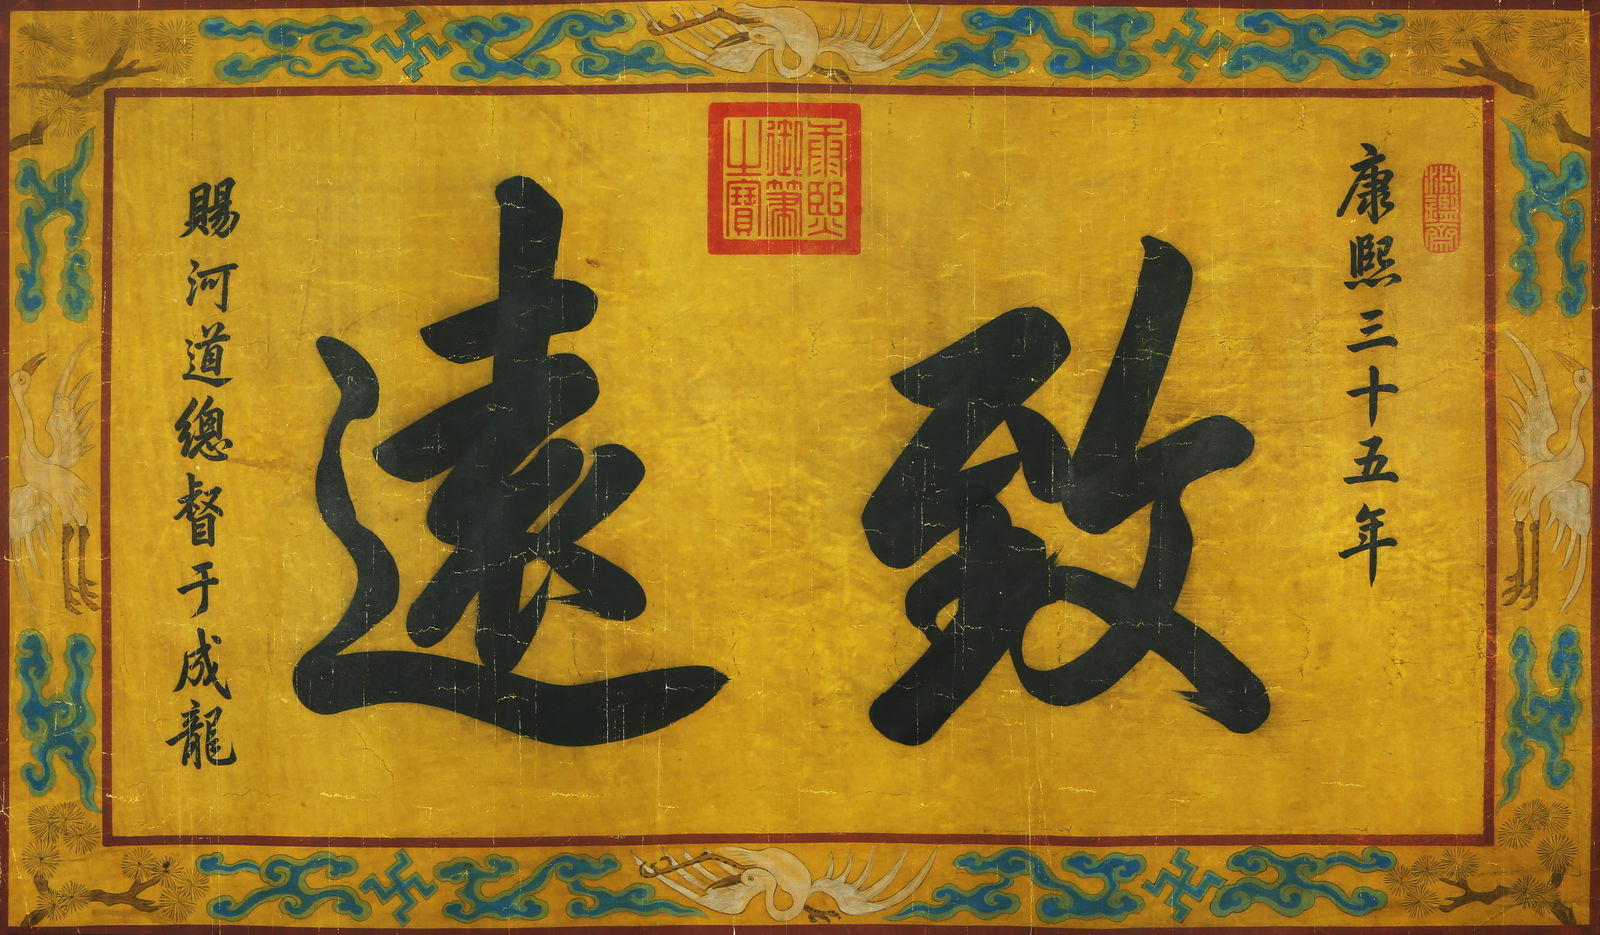 淵鑑齋
康熙三十五年
致遠
康熙
御筆
之寶
賜河道總督于成龍